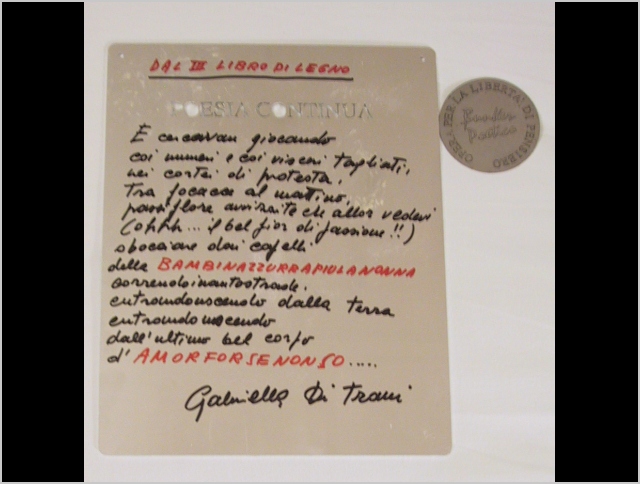 DAL III LIBRO DI LEGNO
POESIA CONTINUA
E cercavan giocando
coi numeri e coi visceri tagliati,
nei cortei di protesta,
tra focacce al mattino,
passiflore avvizzite che allor vedevi
(ohhh... il bel fior di passione!!)
sbocciare dai capelli
della BAMBINAZZURRAPIULANONNA
correndoinautostrade.
entrandouscendo dalla terra
entrandouscendo
dall'ultimo bel corpo
d'AMORFORSENONSO.....
Gabriella Di Trani
OPERA PER LA LIBERTA' DI PENSIERO